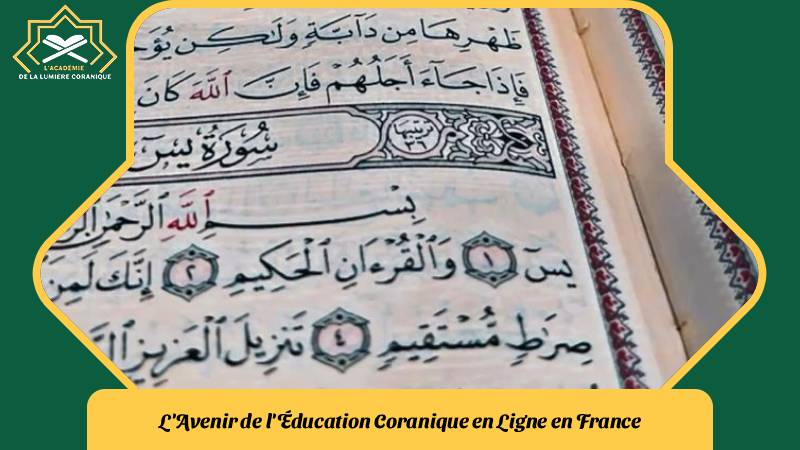 L'ACADÉMIE
DE LA LUMIERE CORANIQUE
ظَهْرِهَا مِن دَآبَّةٍ وَلَٰكِن
فَإِذَا جَآءَ أَجَلُهُمْ فَإِنَّ ٱللَّهَ كَانَ
سُورَةُ يسٓ
ترتيبها
٣٦
بِسْمِ ٱللَّهِ ٱلرَّحْمَٰنِ
يسٓ ١ وَٱلْقُرْءَانِ ٱلْحَكِيمِ ٢ إِنَّكَ لَمِنَ
صِرَٰطٍ مُّسْتَقِيمٍ ٤ تَنزِيلَ ٱلْعَزِيزِ
L'Avenir de l'Éducation Coranique en Ligne en France